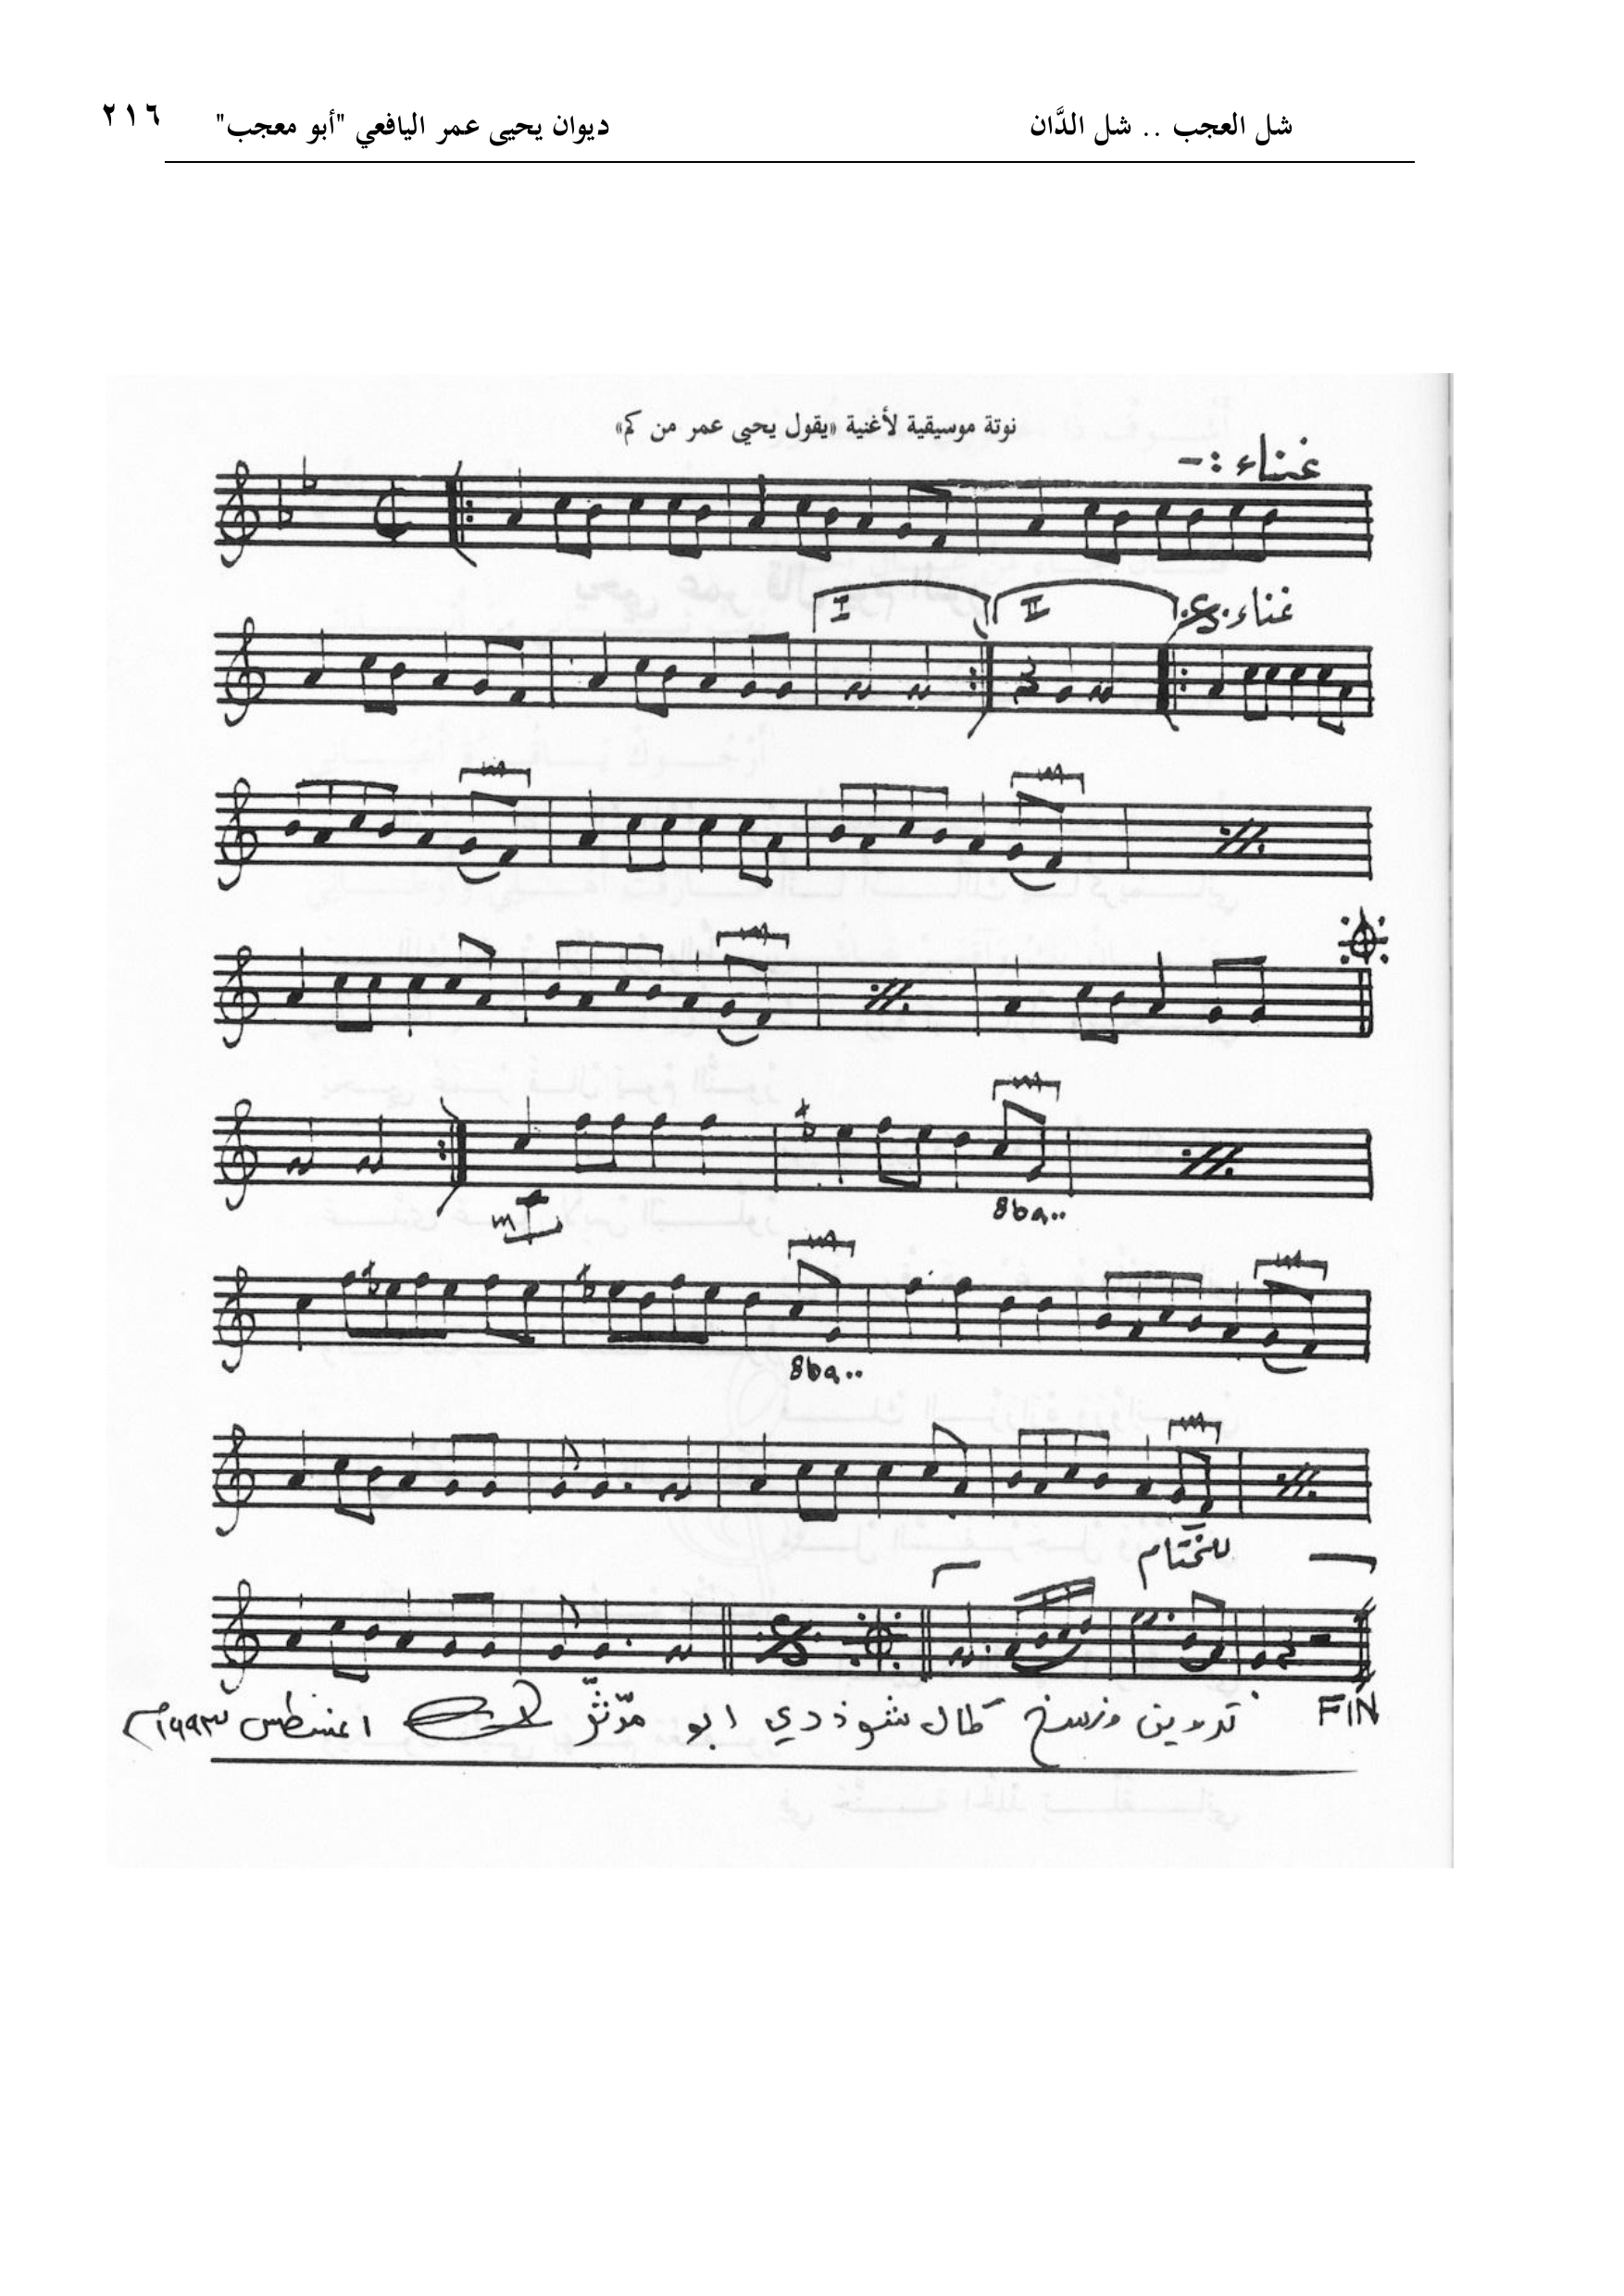 شل العجب .. شل الدَّان ديوان يحيى عمر اليافعي "أبو معجب" ٢١٦
نوتة موسيقية لأغنية «يقول يحيى عمر من كم»
غناء :-
I II غناء
8ba..
8ba..
للختام
FIN
تدوين ونسخ طال شوذدي ابو مدثر اغسطس ١٩٩٣م